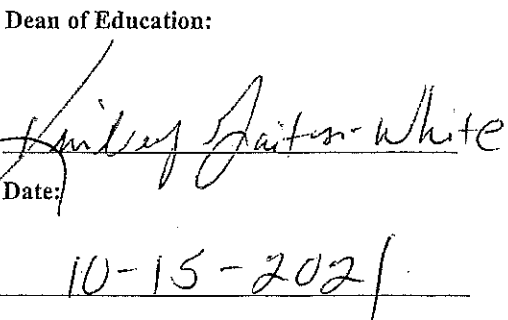 Dean of Education:
Kimberly Gaiton-White
Date:
10-15-2021